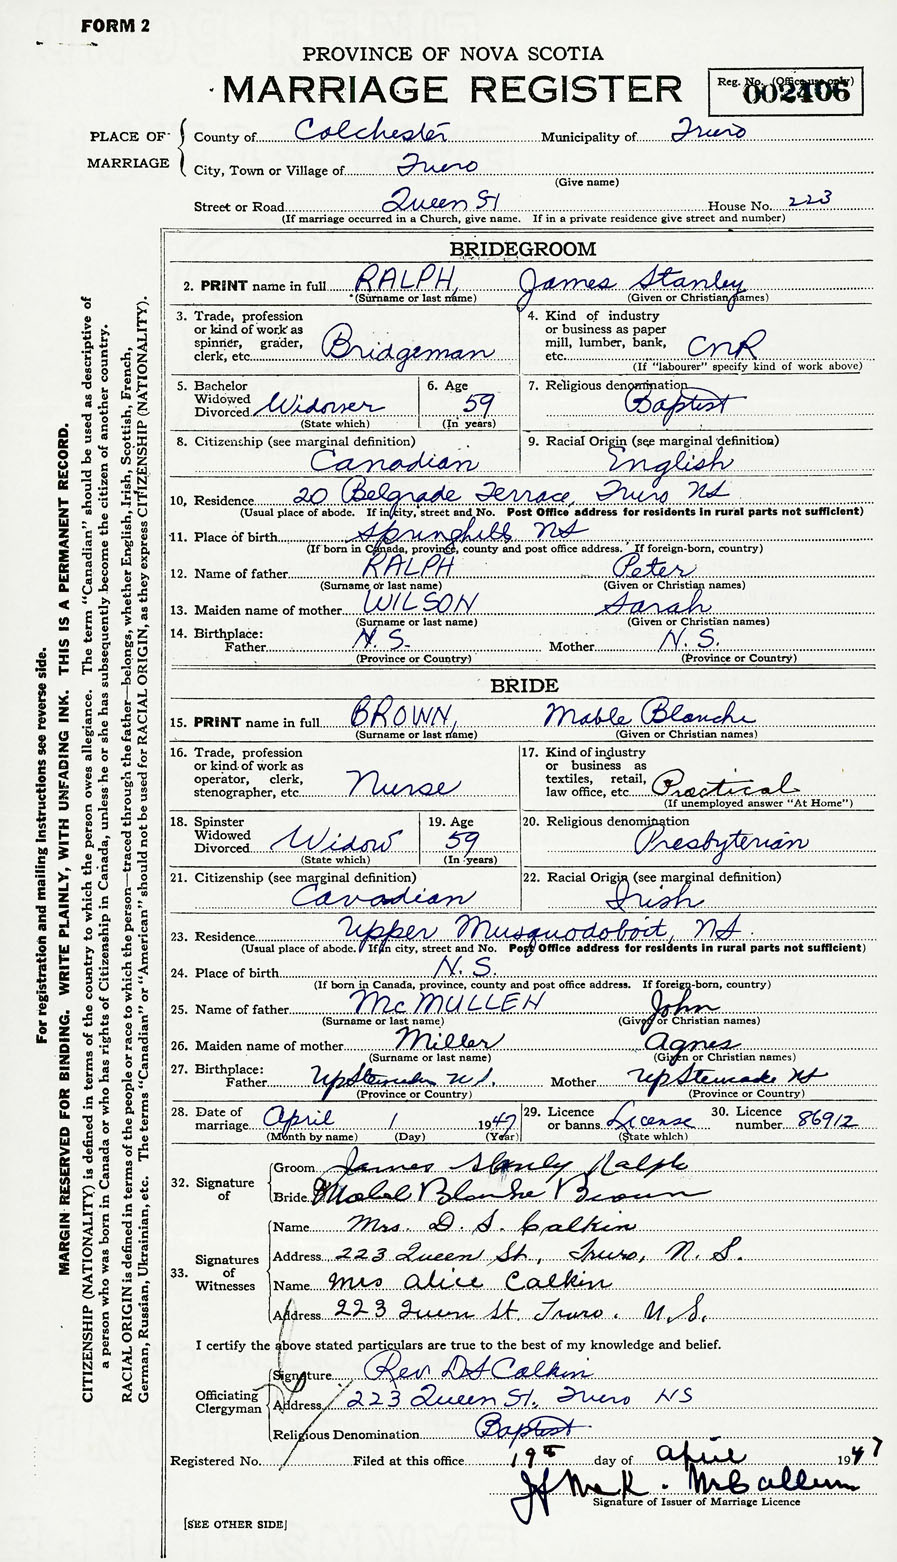 FORM 2
PROVINCE OF NOVA SCOTIA
MARRIAGE REGISTER
Reg. No. (Office use only)
002406
PLACE OF MARRIAGE
County of Colchester Municipality of Truro
City, Town or Village of Truro
(Give name)
Street or Road Queen St House No. 223
(If marriage occurred in a Church, give name. If in a private residence give street and number)
BRIDEGROOM
2. PRINT name in full RALPH, James Stanley
(Surname or last name) (Given or Christian names)
3. Trade, profession or kind of work as spinner, grader, clerk, etc. Bridgeman
4. Kind of industry or business as paper mill, lumber, bank, etc. CNR
(If "labourer" specify kind of work above)
5. Bachelor Widowed Divorced Widower
(State which)
6. Age 59
(In years)
7. Religious denomination Baptist
8. Citizenship (see marginal definition) Canadian
9. Racial Origin (see marginal definition) English
10, Residence 20 Belgrade Terrace, Truro NS
(Usual place of abode. If in city, street and No. Post Office address for residents in rural parts not sufficient)
11. Place of birth Springhill NS
(If born in Canada, province, county and post office address. If foreign-born, country)
12. Name of father RALPH Peter
(Surname or last name) (Given or Christian names)
13. Maiden name of mother WILSON Sarah
(Surname or last name) (Given or Christian names)
14. Birthplace:
Father N.S. Mother N.S.
(Province or Country) (Province or Country)
BRIDE
15. PRINT name in full BROWN, Mable Blanche
(Surname or last name) (Given or Christian names)
16. Trade, profession or kind of work as operator, clerk, stenographer, etc. Nurse
17. Kind of industry or business as textiles, retail, law office, etc. Practical
(If unemployed answer "At Home")
18. Spinster Widowed Divorced Widow
(State which)
19. Age 59
(In years)
20. Religious denomination Presbyterian
21. Citizenship (see marginal definition) Canadian
22. Racial Origin (see marginal definition) Irish
23. Residence Upper Musquodoboit, NS.
(Usual place of abode. If in city, street and No. Post Office address for residents in rural parts not sufficient)
24. Place of birth N.S.
(If born in Canada, province, county and post office address. If foreign-born, country)
25. Name of father McMULLEN John
(Surname or last name) (Given or Christian names)
26. Maiden name of mother Miller Agnes
(Surname or last name) (Given or Christian names)
27. Birthplace:
Father Up N.S. Mother Up NS
(Province or Country) (Province or Country)
28. Date of marriage April 1 1947
(Month by name) (Day) (Year)
29. Licence or banns License
(State which)
30. Licence number 86912
32. Signature of
Groom James Stanly Ralph
Bride Mabel Blanche Brown
33. Signatures of Witnesses
Name Mrs. D. S. Calkin
Address 223 Queen St., Truro, N.S.
Name Mrs Alice Calkin
Address 223 Queen St. Truro. N.S.
I certify the above stated particulars are true to the best of my knowledge and belief.
Officiating Clergyman
Signature Rev. D S Calkin
Address 223 Queen St. Truro NS
Religious Denomination Baptist
Registered No. Filed at this office 19 day of April 1947
McCallum
Signature of Issuer of Marriage Licence
[SEE OTHER SIDE]
For registration and mailing instructions see reverse side.
MARGIN RESERVED FOR BINDING. WRITE PLAINLY, WITH UNFADING INK. THIS IS A PERMANENT RECORD.
CITIZENSHIP (NATIONALITY) is defined in terms of the country to which the person owes allegiance. The term "Canadian" should be used as descriptive of
a person who was born in Canada or who has rights of Citizenship in Canada, unless he or she has subsequently become the citizen of another country.
RACIAL ORIGIN is defined in terms of the people or race to which the person—traced through the father—belongs, whether English, Irish, Scottish, French,
German, Russian, Ukrainian, etc. The terms "Canadian" or "American" should not be used for RACIAL ORIGIN, as they express CITIZENSHIP (NATIONALITY).